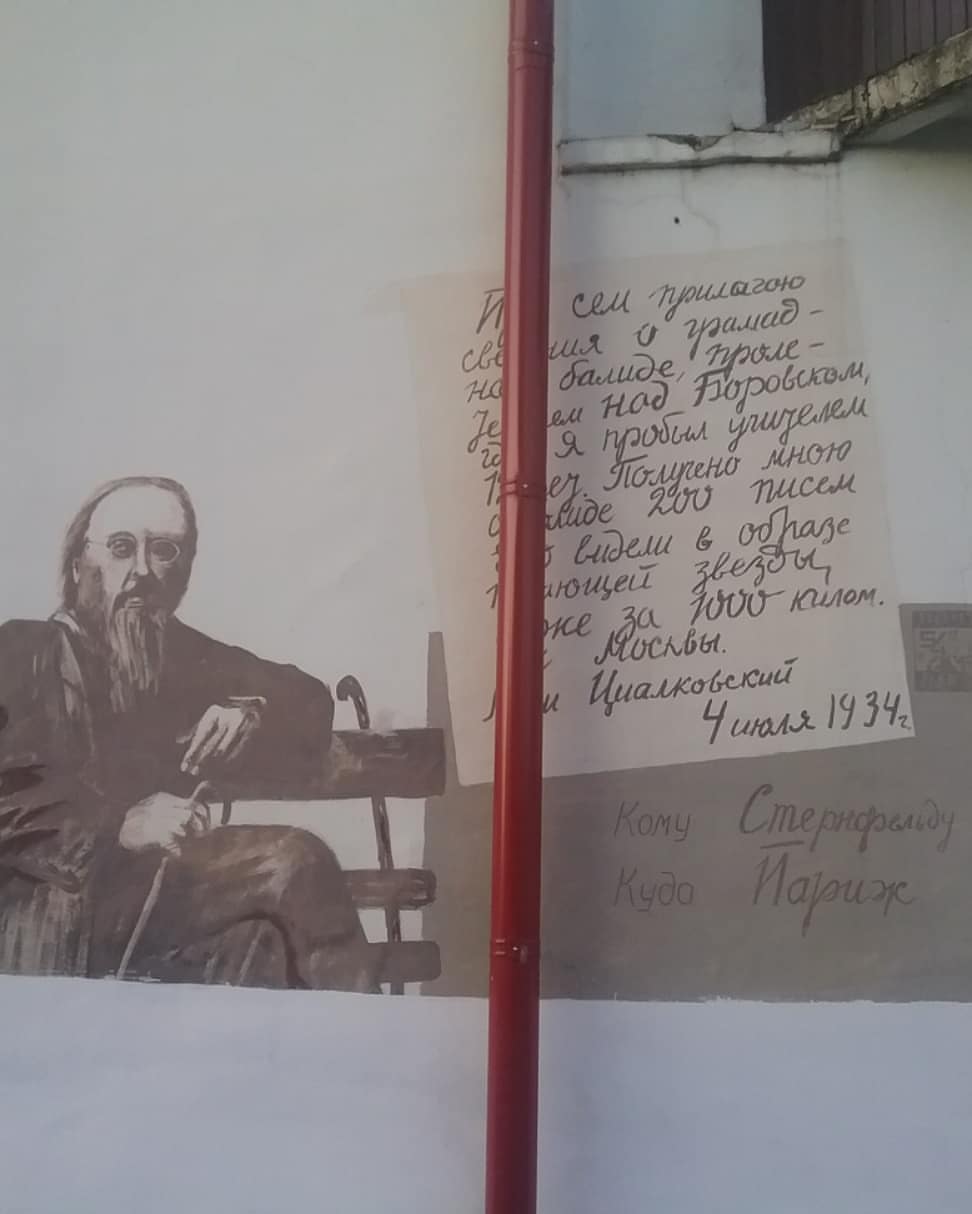 сем прилагаю
о грамад-
балиде, проле-
над Боровском,
я пробыл учителем
Получено мною
200 писем
видели в образе
звезды,
за 1000 килом.
Москвы.
Циалковский
4 июля 1934г.
Кому Стернфельду
Куда Париж